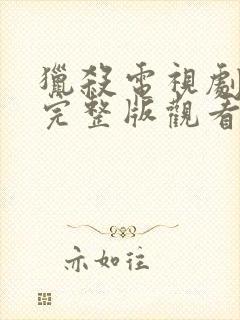 獵殺電視劇
完整版觀看
亦如往